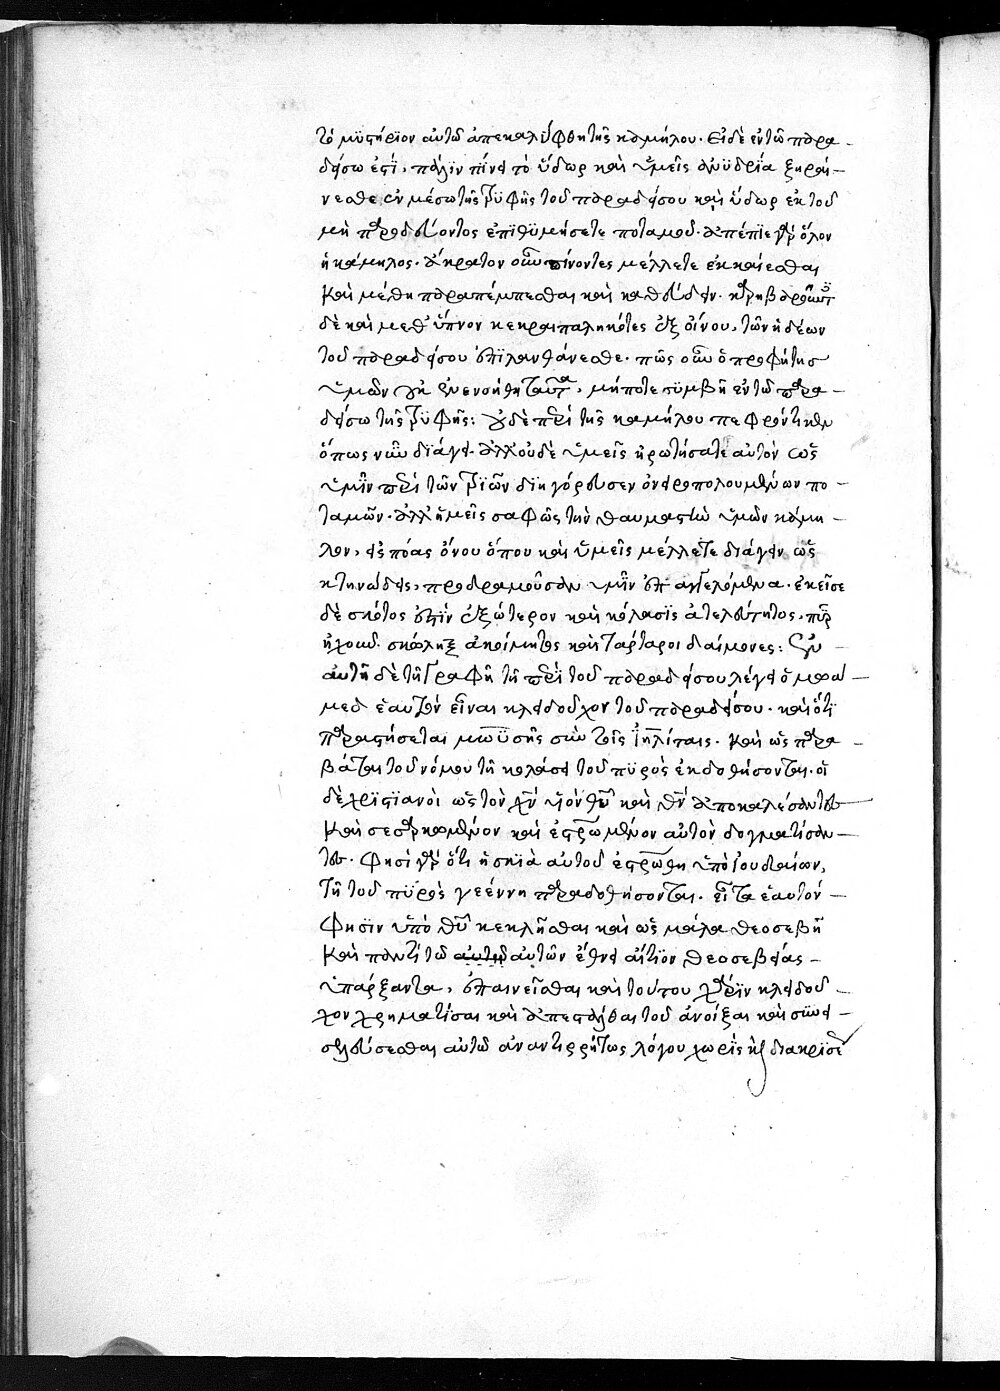 τὸ μυστήριον αὐτῶ ἀπεκαλύφθη τῆς καμήλου. Εἰ δὲ ἐν τῶ παρα-
δείσω ἐστὶ, πάλϊν πίνει τὸ ὕδωρ καὶ ὑμεῖς ἀνϋδρία ξηραί-
νεσθε ἐν μέσω τῆς τρϋφῆς τοῦ παραδείσου καὶ ὕδωρ ἐκ τοῦ
μὴ παροδεύοντος ἐπϊθϋμήσετε ποταμοῦ. ἀπέπϊε γὰρ ὅλον
ἡ κάμηλος. ἄκρατον οὖν πίνοντες μέλλετε ἐκκαίεσθαι
καὶ μέθη παραπέμπεσθαι καὶ καθεύδειν.
δὲ καὶ μεθ' ὕπνον κεκραιπαληκότες ἐξ οἴνου, τῶν ἡδέων
τοῦ παραδείσου ἐπϊλανθάνεσθε. πῶς οὖν ὁ προφήτης
ὑμῶν οὐκ ἐνενοήθη ταῦτα, μήποτε σϋμβῆ ἐν τῶ παρα-
δείσω τῆς τρϋφῆς: οὐδὲ περὶ τῆς καμήλου πεφρόντικεν
ὅπως νῦν διάγει. ἀλλ' οὐδὲ ὑμεῖς ἠρωτήσατε αὐτὸν ὡς
ὑμῖν περὶ τῶν τριῶν διηγόρευσεν ὀνειροπολουμένων πο-
ταμῶν. ἀλλ' ἡμεῖς σαφῶς τὴν θαυμαστὴν ὑμῶν κάμη-
λον, εἰς πόας ὄνου ὅπου καὶ ὑμεῖς μέλλετε διάγειν ὡς
κτηνώδεις, προδραμοῦσαν ὑμῖν ἐπαγγελόμενα. ἐκεῖσε
δὲ σκότος ἐστὶν ἐξώτερον καὶ κόλασϊς ἀτελεύτητος. πῦρ
ἠχοῦν. σκώληξ ἀκοίμητος καὶ ταρτάροι δαίμονες: Ἐν
αὐτῆ δὲ τῆ γραφῆ τῆ περὶ τοῦ παραδείσου λέγει ὁ μωά-
μεδ ἑαυτὸν εἶναι κλειδοῦχον τοῦ παραδείσου. καὶ ὅτϊ
παραστήσεται μωϋσῆς σὺν τοῖς ἰηλίταις. καὶ ὡς παρα-
βάται τοῦ νόμου τῆ κολάσει τοῦ πϋρὸς ἐκδοθήσονται. οἱ
δὲ χρϊστϊανοὶ ὡς τὸν χν υἱὸν θυ καὶ θν ἀποκαλέσαντες
καὶ σεσαρκωμένον καὶ ἐστρωμένον αὐτὸν δογματίσαν-
τες. φησὶ γὰρ ὅτι ἡ σκϊὰ αὐτοῦ ἐστρώθη ὑπὸ ἰουδαίων,
τῆ τοῦ πϋρὸς γεέννη παραδοθήσονται. εἶτα ἑαυτόν-
φησὶν ὑπὸ θυ κεκλῆσθαι καὶ ὡς μάλα θεοσεβῆ
καὶ παντὶ τῶ αὐτῶν ἔθνει αἴτϊον θεοσεβείας-
ὑπάρξαντα, ἐπαινεῖσθαι καὶ τούτου χάρϊν κλειδοῦ-
χον χρηματίσαι καὶ ἀπεστάλθαι τοῦ ἀνοῖξαι καὶ συνει-
σελεύσεσθαι αὐτῶ ἀναντιρρήτως λόγου χωρὶς καὶ διακρίσε